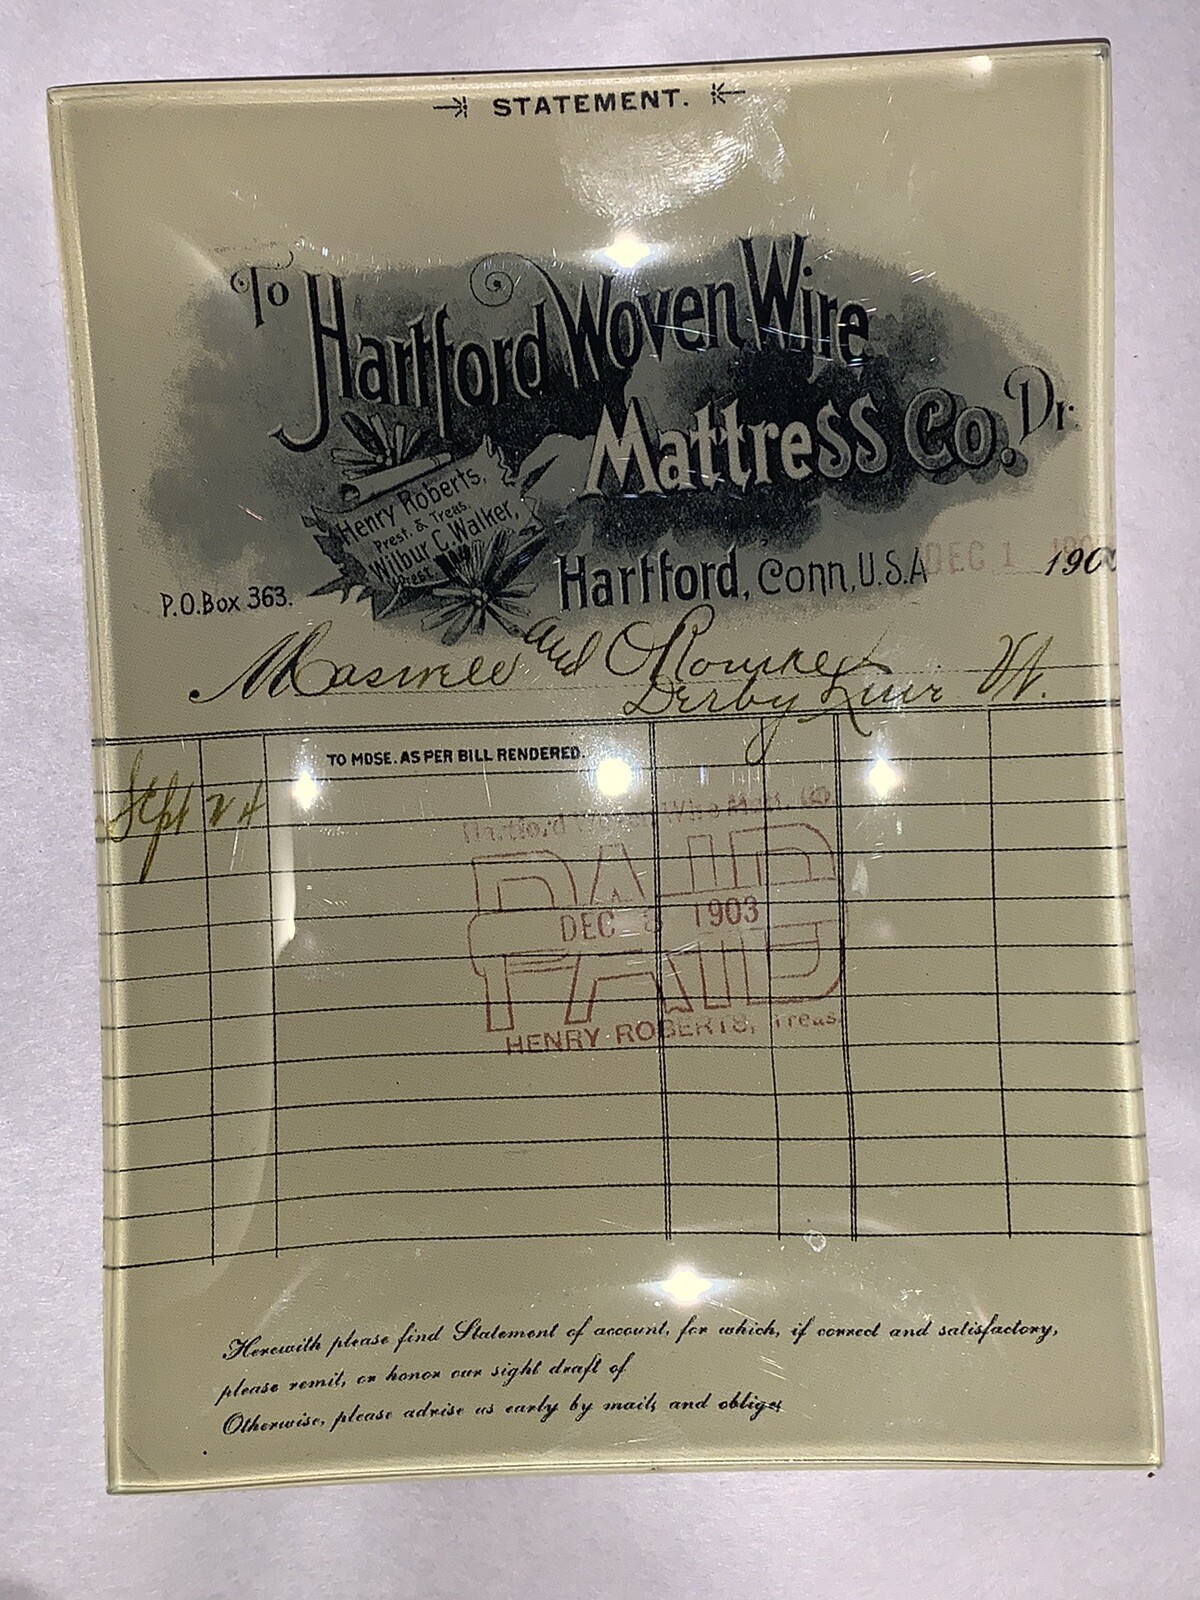 STATEMENT.
To Hartford Woven Wire
Mattress Co. Dr.
Henry Roberts,
Prest. & Treas.
Wilbur C. Walker,
P.O. Box 363.
Hartford, Conn, U.S.A
DEC 1 190
and O'Rourke
Derby Line Vt.
TO MDSE. AS PER BILL RENDERED.
Sept 24
Hartford Woven Wire Matt. Co.
PAID
DEC 1903
HENRY ROBERTS, Treas.
Herewith please find Statement of account, for which, if correct and satisfactory,
please remit, or honor our sight draft of
Otherwise, please advise us early by mail, and oblige,